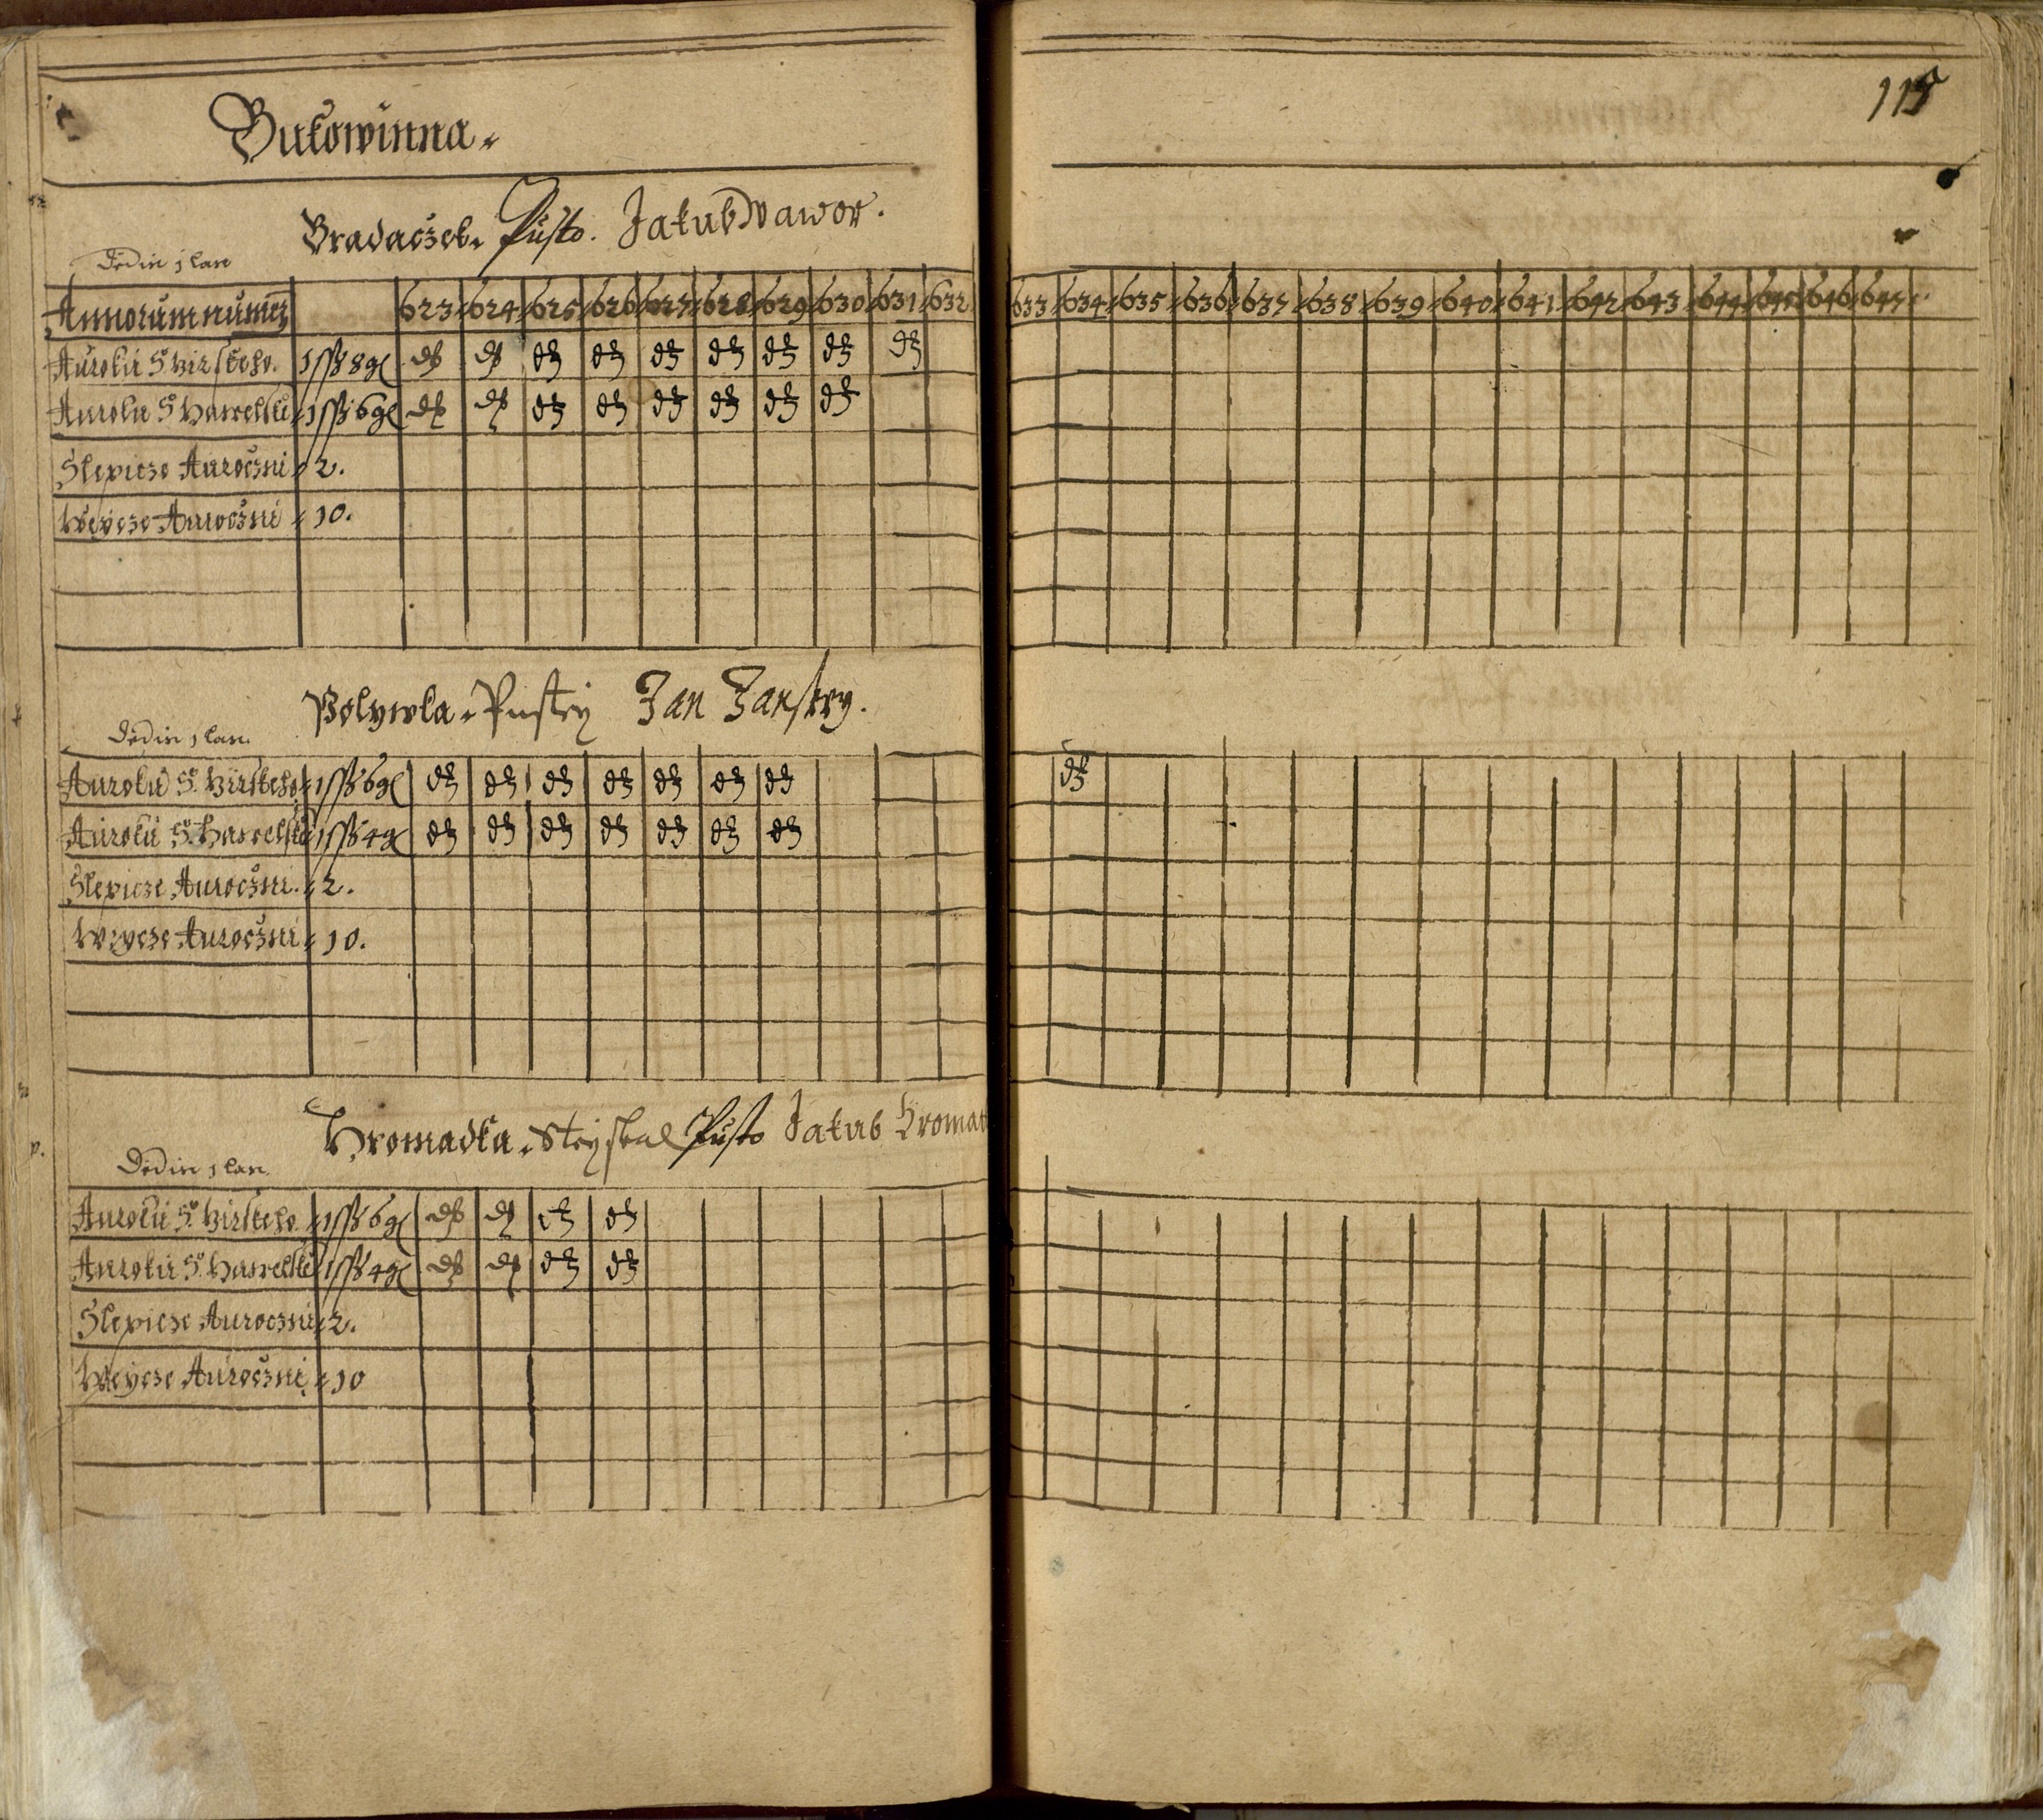 Bukowinna.
115
Bradaczek. Pusto. Jakub Wawor.
Dědin 1 lan
Annorum numer 623 624 625 626 627 628 629 630 631 632 633 634 635 636 637 638 639 640 641 642 643 644 645 646 647
Auroku S. Girskeho. 1 ss 8 g dt dt dt dt dt dt dt dt dt
Auroku S. Hawelske 1 ss 6 g dt dt dt dt dt dt dt dt
Slepicze Auroczni 2.
Weycze Auroczni 10.
Polywka. Pustý Jan Janský.
Dědin 1 lan.
Auroku S. Girskeho 1 ss 6 g dt dt dt dt dt dt dt dt
Auroku S. Hawelske 1 ss 4 g dt dt dt dt dt dt dt
Slepicze Auroczni. 2.
Weycze Auroczni 10.
Hromadka. Steyskal Pusto Jakub Hromat
Dědin 1 lan
Auroku S. Girskeho. 1 ss 6 g dt dt dt dt
Auroku S. Hawelske 1 ss 4 g dt dt dt dt
Slepicze Auroczni 2.
Weycze Auroczni 10